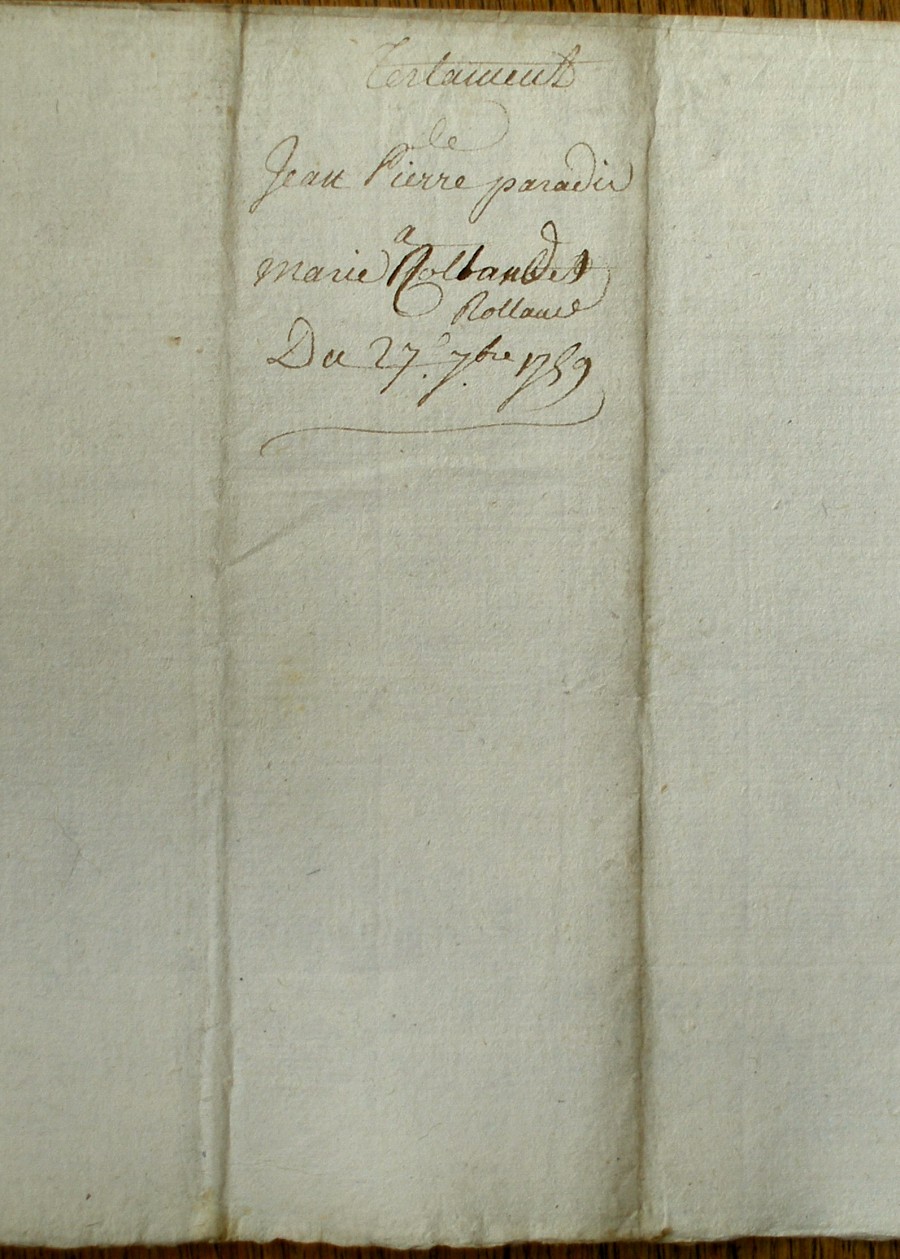 Testament
de
Jean Pierre paradis
a
marie
Rolland
Du 27e 7bre 1759